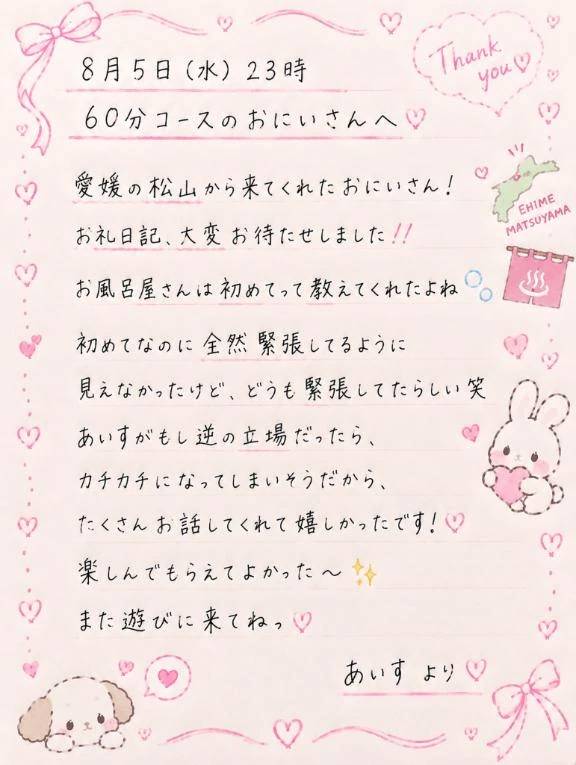 8月5日(水) 23時
60分コースのおにいさんへ♡
Thank
you♡
愛媛の松山から来てくれたおにいさん!
お礼日記、大変お待たせしました!!
EHIME
MATSUYAMA
お風呂屋さんは初めてって教えてくれたよね
初めてなのに全然緊張してるように
見えなかったけど、どうも緊張してたらしい笑
あいすがもし逆の立場だったら、
カチカチになってしまいそうだから、
たくさんお話してくれて嬉しかったです!♡
楽しんでもらえてよかった〜✨
また遊びに来てねっ♡
あいすより♡